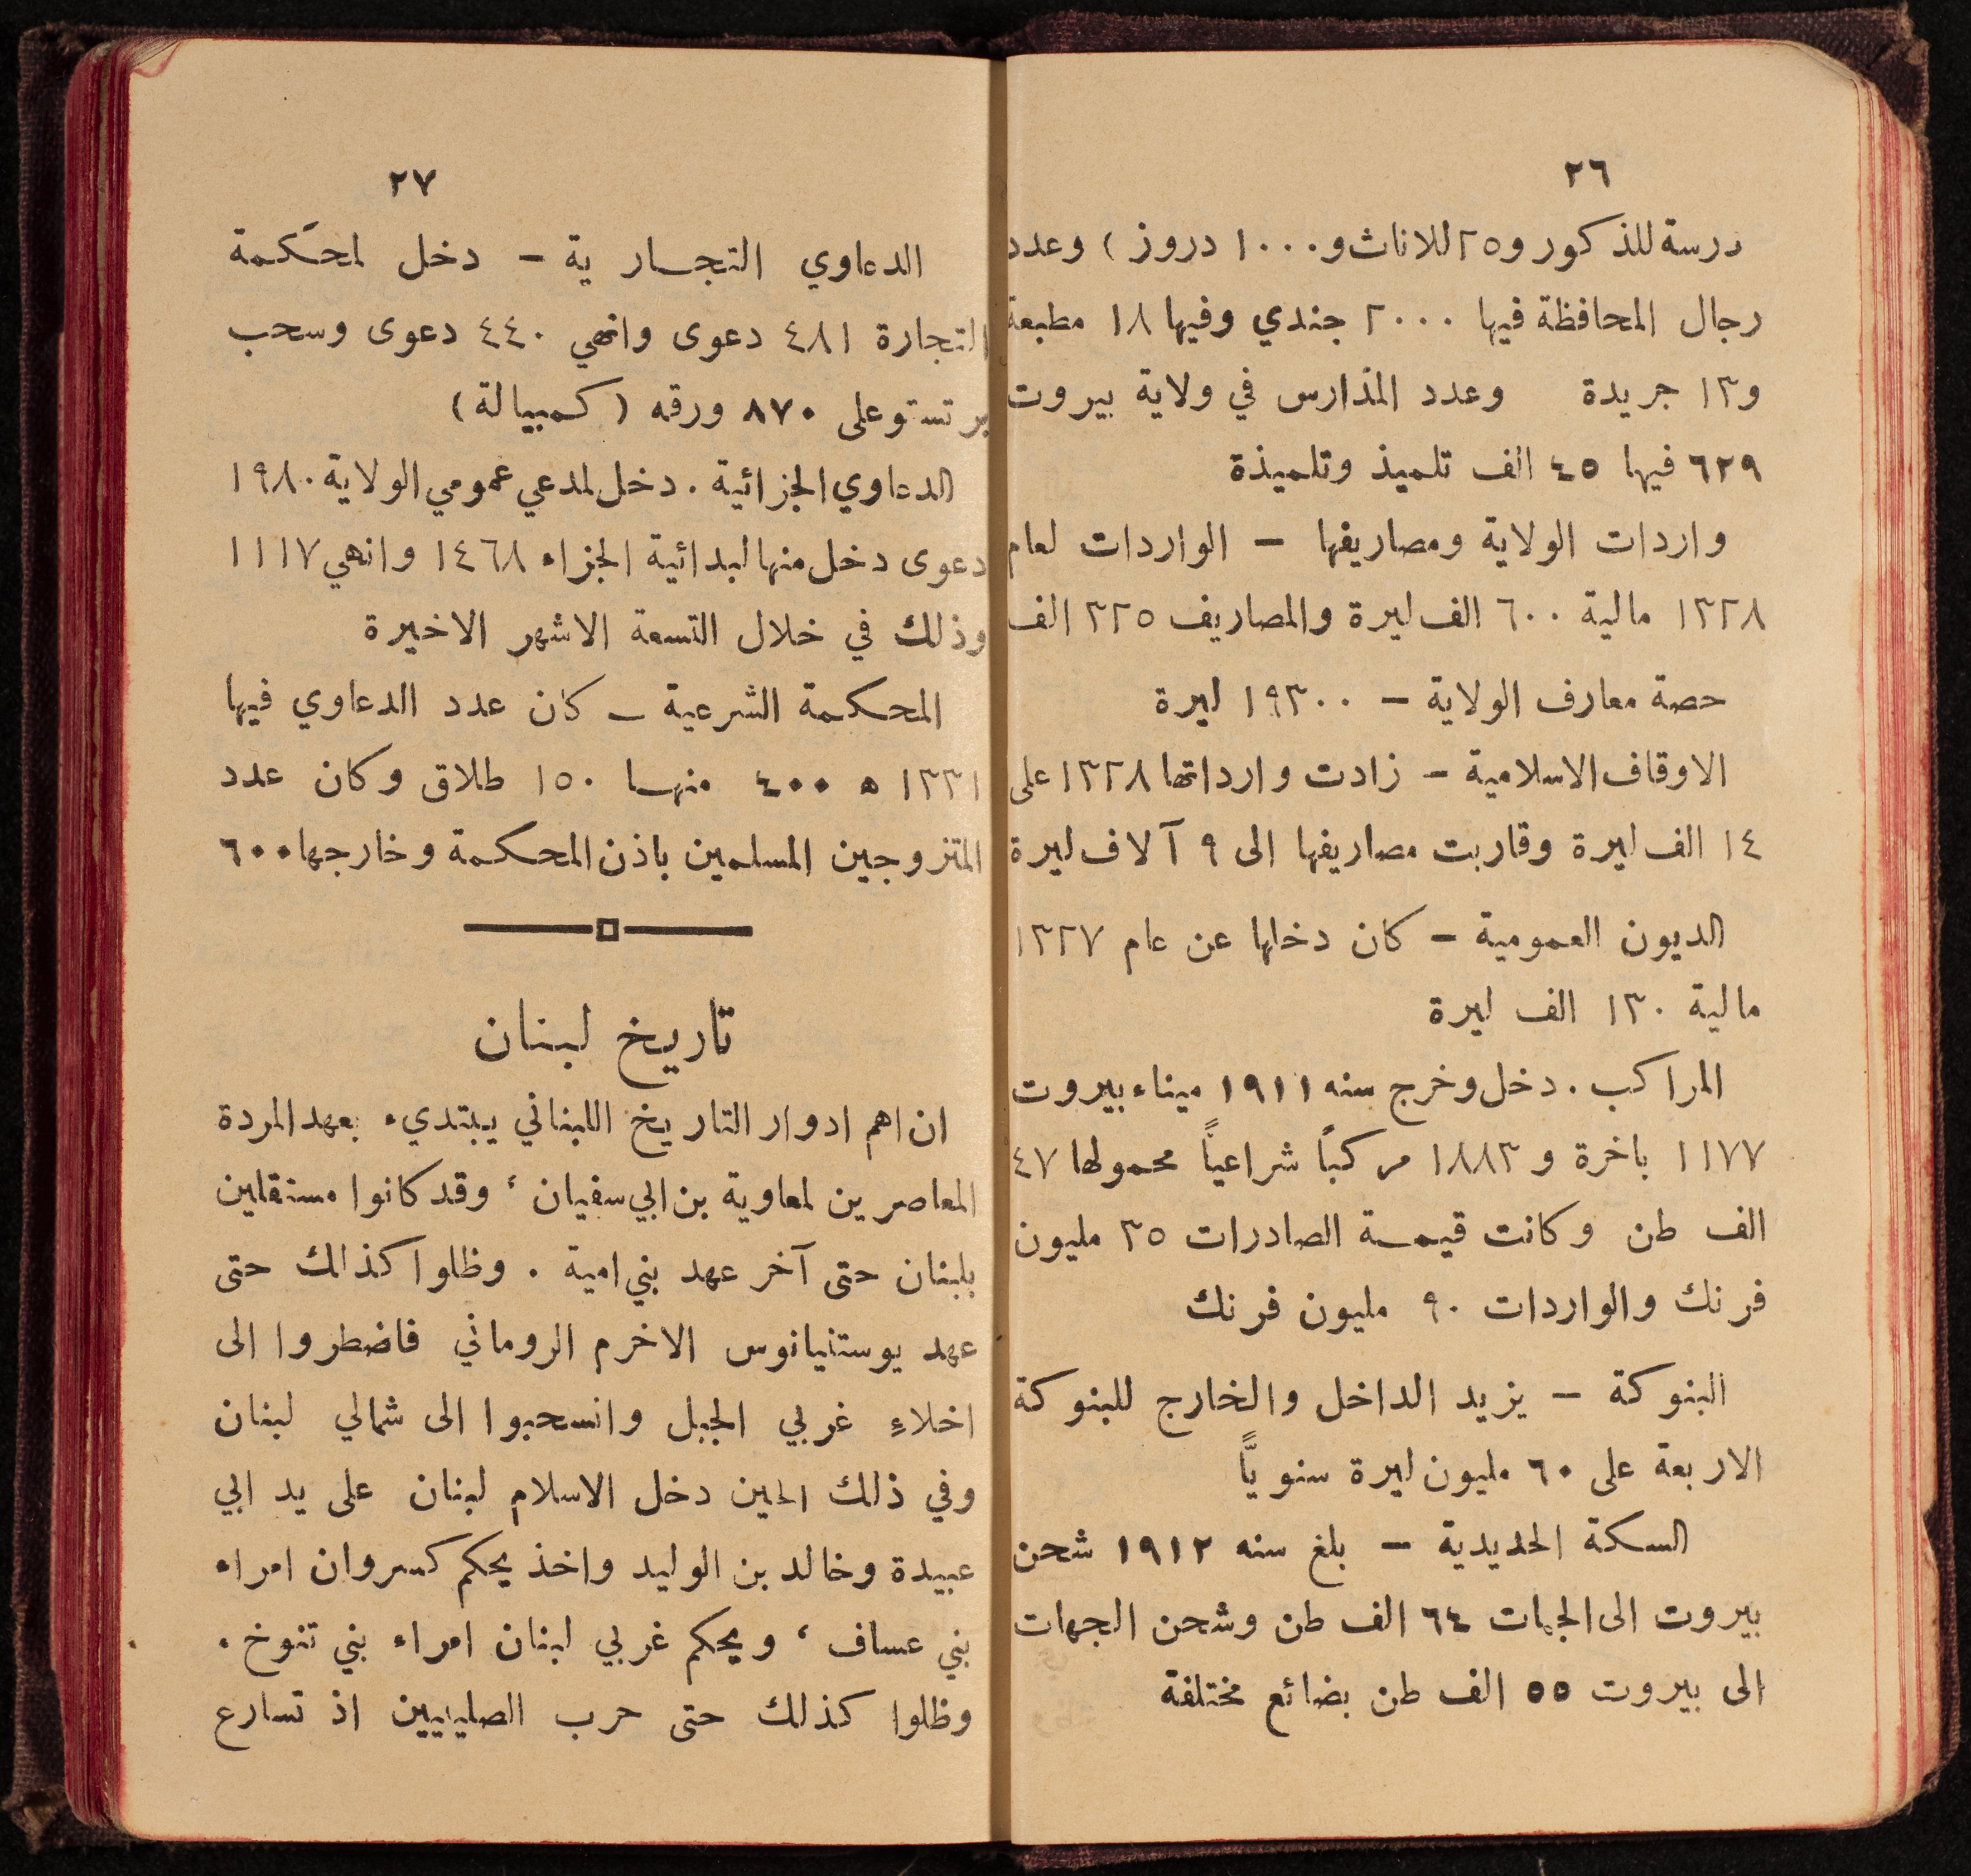 ٢٦
درسة للذكور و٢٥ للاناث و١٠٠٠ دروز) وعدد
رجال المحافظة فيها ٢٠٠٠ جندي وفيها ١٨ مطبعة
و١٣ جريدة وعدد المدارس في ولاية بيروت
٦٢٩ فيها ٤٥ الف تلميذ وتلميذة
واردات الولاية ومصاريفها – الواردات لعام
١٣٢٨ مالية ٦٠٠ الف ليرة والمصاريف ٣٢٥ الف
حصة معارف الولاية – ١٩٣٠٠ ليرة
الاوقاف الاسلامية – زادت وارداتها ١٣٢٨ على
١٤ الف ليرة وقاربت مصاريفها الى ٩ آلاف ليرة
الديون العمومية – كان دخلها عن عام ١٣٢٧
مالية ١٣٠ الف ليرة
المراكب . دخل وخرج سنه ١٩١١ ميناء بيروت
١١٧٧ باخرة و ١٨٨٣ مركبًا شراعياً محمولها ٤٧
الف طن وكانت قيمة الصادرات ٣٥ مليون
فرنك والواردات ٩٠ مليون فرنك
البنوكة – يزيد الداخل والخارج للبنوكة
الاربعة على ٦٠ مليون ليرة سنويًّا
السكة الحديدية – بلغ سنه ١٩١٢ شحن
بيروت الى الجهات ٦٤ الف طن وشحن الجهات
الى بيروت ٥٥ الف طن بضائع مختلفة
٢٧
الدعاوي التجارية – دخل لمحكمة
التجارة ٤٨١ دعوى وانهي ٤٤٠ دعوى وسحب
برتستو على ٨٧٠ ورقه (كمبيالة)
الدعاوي الجزائية . دخل لمدعي عمومي الولاية ١٩٨٠
دعوى دخل منها لبدائية الجزاء ١٤٦٨ وانهي ١١١٧
وذلك في خلال التسعة الاشهر الاخيرة
المحكمة الشرعية – كان عدد الدعاوي فيها
١٣٣١ ه ٤٠٠ منها ١٥٠ طلاق وكان عدد
المتزوجين المسلمين باذن المحكمة وخارجها ٦٠٠
تاريخ لبنان
ان اهم ادوار التاريخ اللبناني يبتديء بعهد المردة
المعاصرين لمعاوية بن ابي سفيان ، وقد كانوا مستقلين
بلبنان حتى آخر عهد بني امية . وظلوا كذالك حتى
عهد يوستنيانوس الاخرم الروماني فاضطروا الى
اخلاءِ غربي الجبل وانسحبوا الى شمالي لبنان
وفي ذلك الحين دخل الاسلام لبنان على يد ابي
عبيدة وخالد بن الوليد واخذ يحكم كسروان امراء
بني عساف ، ويحكم غربي لبنان امراء بني تنوخ .
وظلوا كذلك حتى حرب الصليبيين اذ تسارع